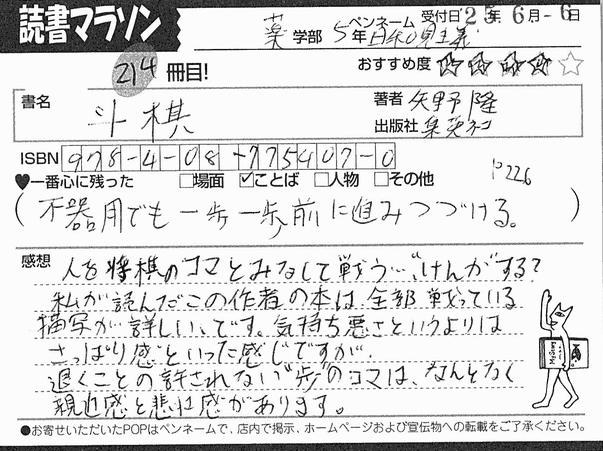 読書マラソン
薬 学部 5年 ペンネーム 日和見主義 受付日 25年 6月 6日
214 冊目!
おすすめ度 ★★★★☆
書名 斗棋
著者 矢野 隆
出版社 集英社
ISBN 978-4-08-775407-0
♥一番心に残った □場面 ☑ことば □人物 □その他 P226
(不器用でも一歩一歩前に進みつづける。)
感想 人を将棋のコマとみなして戦う…、けんかする?
私が読んだこの作者の本は、全部戦っている
描写が詳しい、です。気持ち悪さというよりは
さっぱり感といった感じですが、
退くことの許されない"歩"のコマは、なんとなく
親近感と悲壮感があります。
●お寄せいただいたPOPはペンネームで、店内で掲示、ホームページおよび宣伝物への転載をご了承ください。